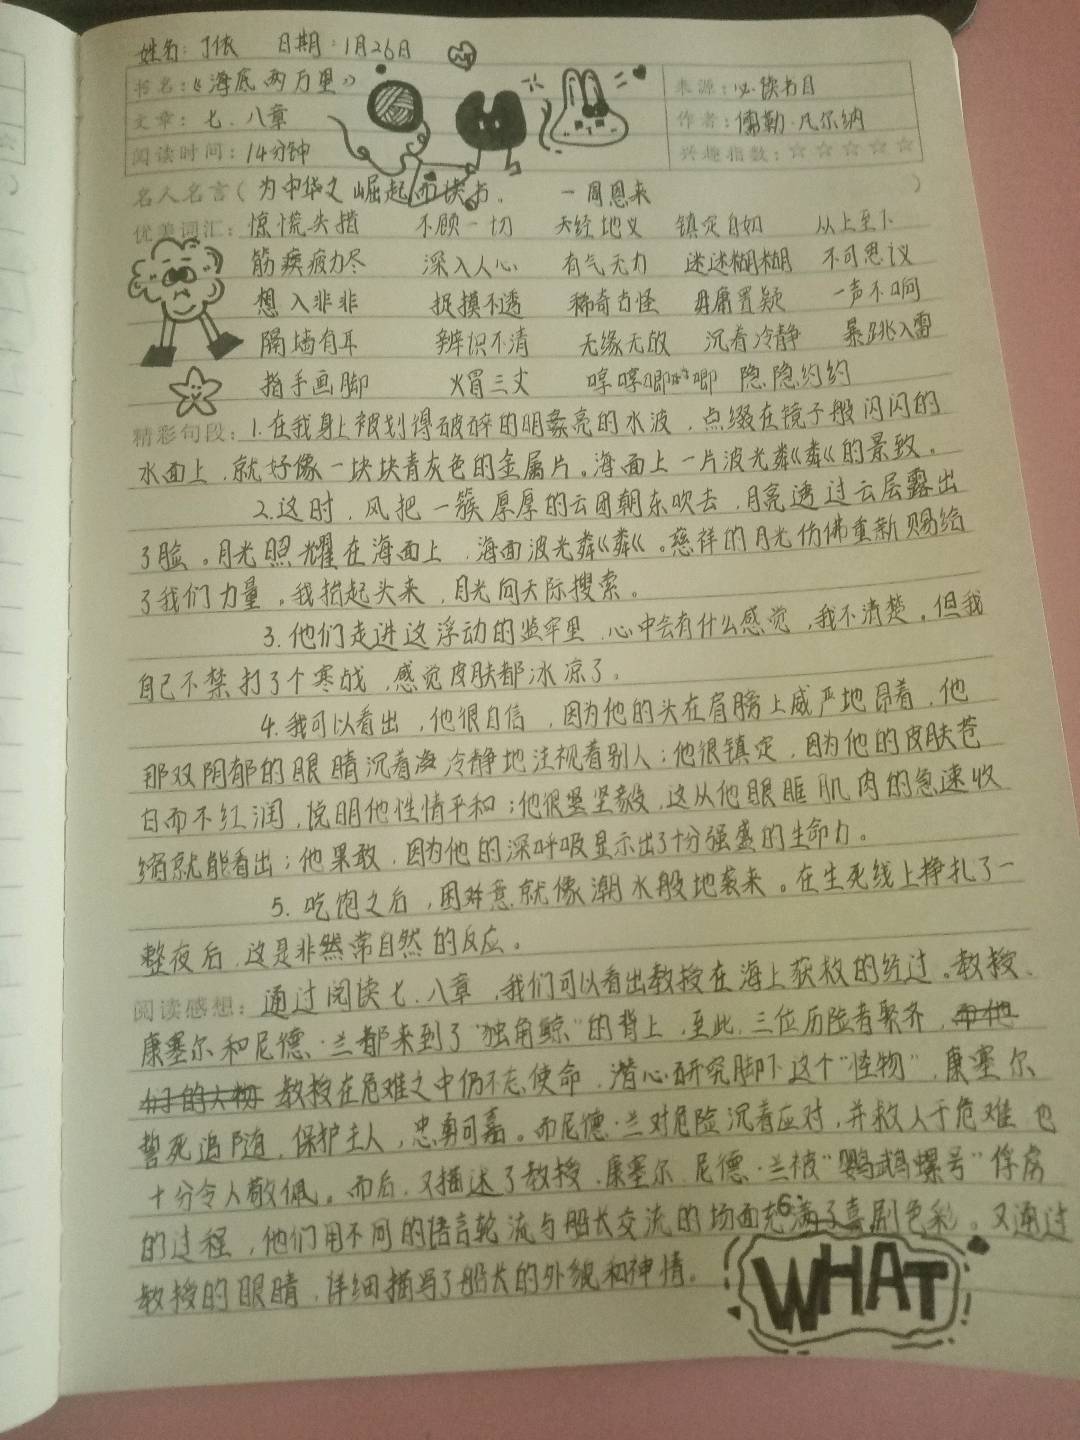 姓名：丁依 日期：1月26日
书名：《海底两万里》 来源：必读书目
文章：七、八章 作者：儒勒·凡尔纳
阅读时间：14分钟 兴趣指数：☆☆☆☆☆
名人名言（为中华之崛起而读书。 —周恩来）
优美词汇：惊慌失措 不顾一切 天经地义 镇定自如 从上至下
筋疾疲力尽 深入人心 有气无力 迷迷糊糊 不可思议
想入非非 捉摸不透 稀奇古怪 毋庸置疑 一声不响
隔墙有耳 辨识不清 无缘无故 沉着冷静 暴跳入雷
指手画脚 火冒三丈 哼哼唧唧 隐隐约约
精彩句段：1.在我身上被划得破碎的明亮的水波，点缀在镜子般闪闪的
水面上，就好像一块块青灰色的金属片。海面上一片波光粼粼的景致。
2.这时，风把一簇厚厚的云团朝东吹去，月亮透过云层露出
了脸。月光照耀在海面上，海面波光粼粼。慈祥的月光仿佛重新赐给
了我们力量。我抬起头来，目光向天际搜索。
3.他们走进这浮动的监牢里，心中会有什么感觉，我不清楚。但我
自己不禁打了个寒战，感觉皮肤都冰凉了。
4.我可以看出，他很自信，因为他的头在肩膀上威严地昂着，他
那双阴郁的眼睛沉着冷静地注视着别人；他很镇定，因为他的皮肤苍
白而不红润，说明他性情平和；他很坚毅，这从他眼眶肌肉的急速收
缩就能看出；他果敢，因为他的深呼吸显示出了十分强盛的生命力。
5.吃饱之后，困意就像潮水般地袭来。在生死线上挣扎了一
整夜后，这是非常自然的反应。
阅读感想：通过阅读七、八章，我们可以看出教授在海上获救的经过。教授、
康塞尔和尼德·兰都来到了“独角鲸”的背上，至此，三位历险者聚齐，
教授在危难之中仍不忘使命，潜心研究脚下这个“怪物”，康塞尔
誓死追随，保护主人，忠勇可嘉。而尼德·兰对危险沉着应对，并救人于危难，也
十分令人敬佩。而后，又描述了教授、康塞尔、尼德·兰被“鹦鹉螺号”俘虏
的过程，他们用不同的语言轮流与船长交流的场面充满了喜剧色彩。又通过
教授的眼睛，详细描写了船长的外貌和神情。
WHAT